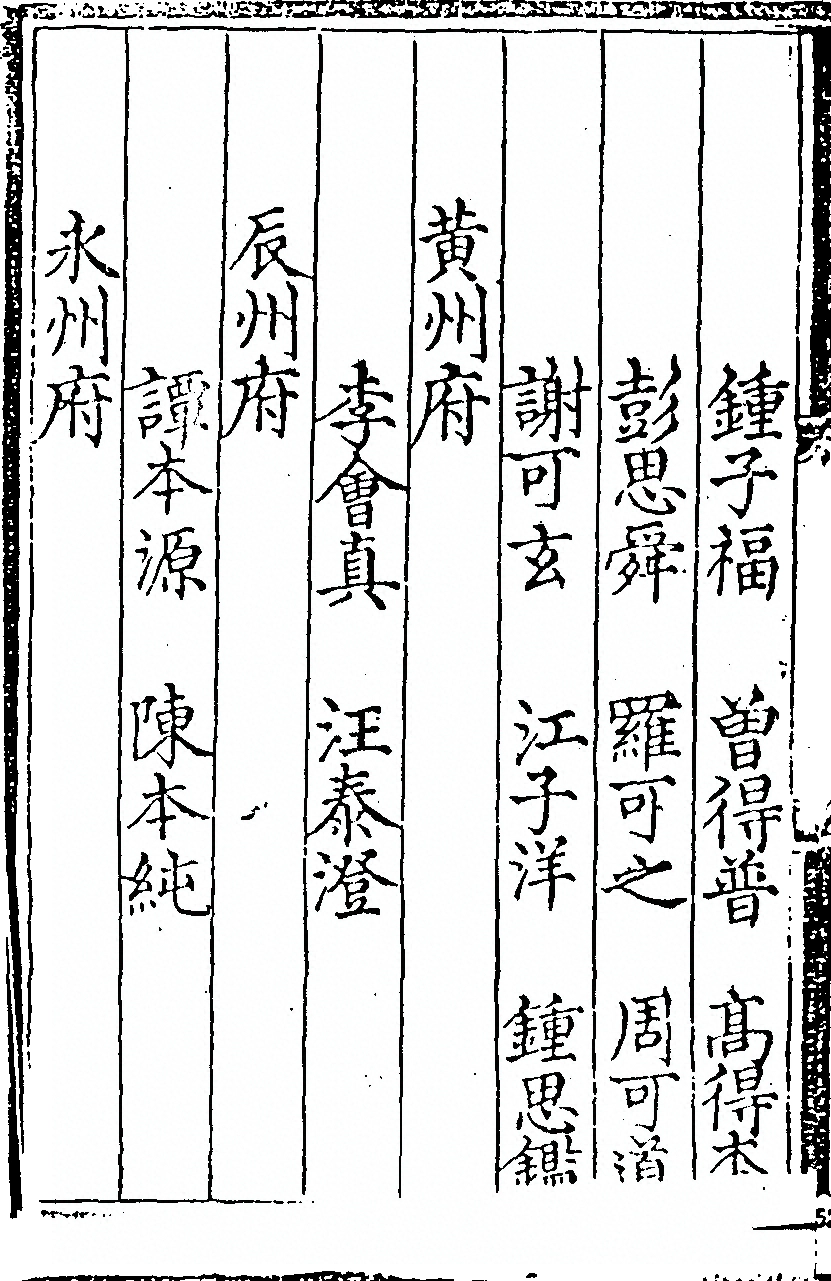 鍾子福　曾得普　高得本
彭思舜　羅可之　周可道
謝可玄　江子洋　鍾思鑑
黄州府
李會真　汪泰澄
辰州府
譚本源　陳本純
永州府